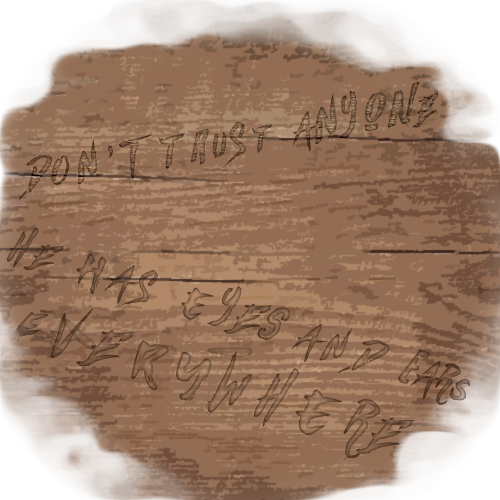 DON'T TRUST ANYONE
HE HAS EYES AND EARS
EVERYWHERE